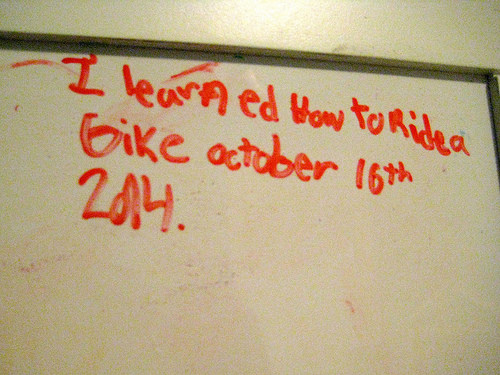 I learned How to Ride a
Bike october 16th
2014.